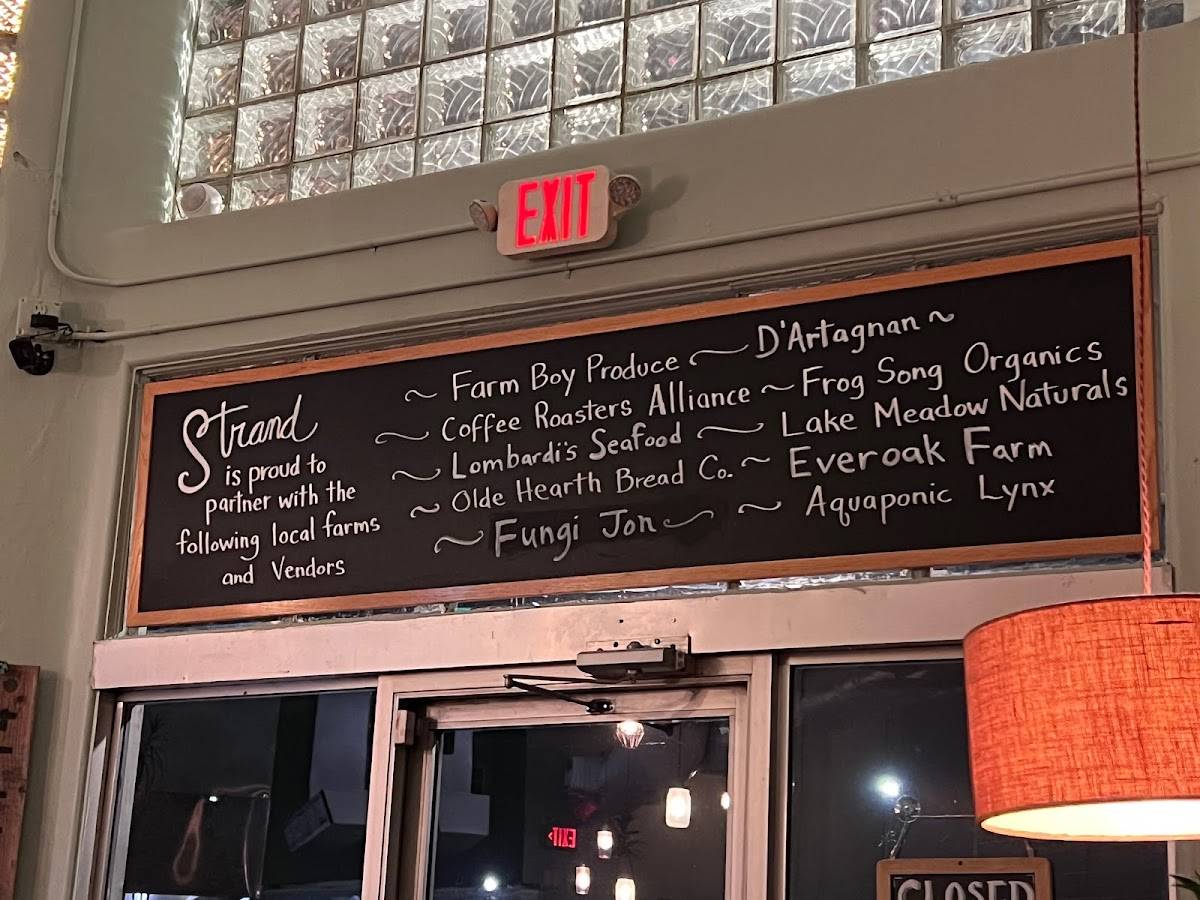 EXIT
Strand
is proud to
partner with the
following local farms
and Vendors
~ Farm Boy Produce ~ D'Artagnan ~
~ Coffee Roasters Alliance ~ Frog Song Organics
~ Lombardi's Seafood ~ Lake Meadow Naturals
~ Olde Hearth Bread Co. ~ Everoak Farm
~ Fungi Jon ~ ~ Aquaponic Lynx
EXIT
CLOSED